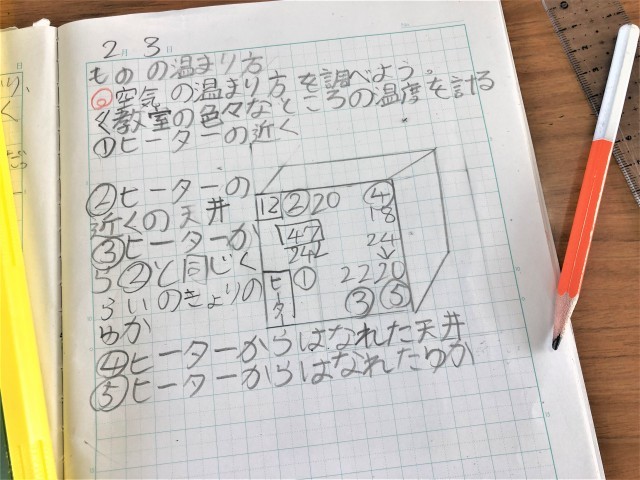 2月3日
ものの温まり方
◎空気の温まり方を調べよう。
く教室の色々なところの温度を計る
①ヒーターの近く
②ヒーターの
近くの天井
③ヒーターか
ら②と同じく
らいのきょりの
ゆか
④ヒーターからはなれた天井
⑤ヒーターからはなれたゆか
12 ② 20 ④
18
47
24
242
↓
ヒーター ① 22 20
③ ⑤